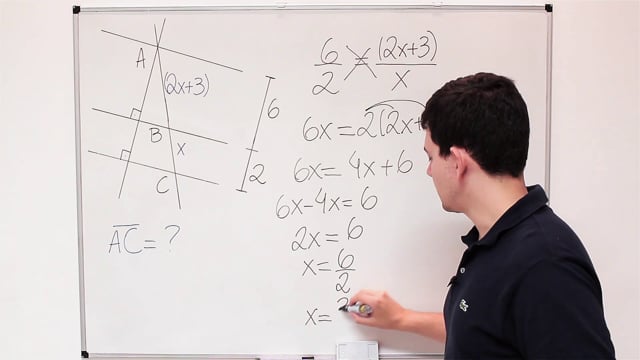 A
(2x+3)
B
x
C
6
2
AC = ?
6/2 = (2x+3)/x
6x = 2(2x+
6x = 4x + 6
6x - 4x = 6
2x = 6
x = 6/2
x =